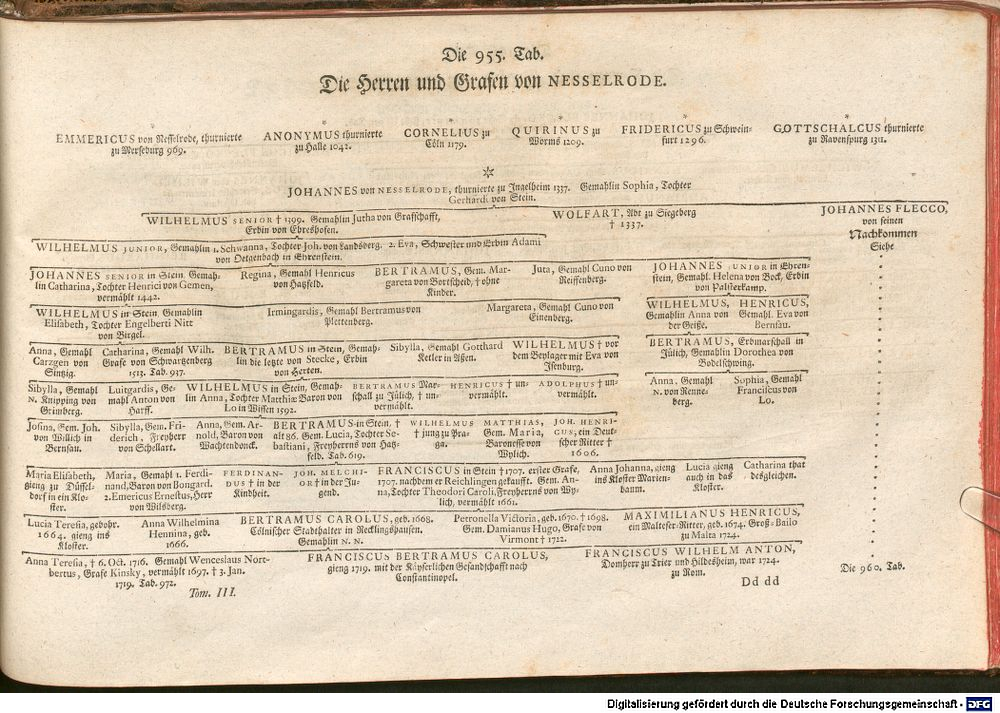 Die 955. Tab.
Die Herren und Grafen von NESSELRODE.
EMMERICUS von Nesselrode, thurnierte
zu Merseburg 969.
ANONYMUS thurnierte
zu Halle 1042.
CORNELIUS zu
Cöln 1179.
QUIRINUS zu
Worms 1209.
FRIDERICUS zu Schwein-
furt 1296.
GOTTSCHALCUS thurnierte
zu Ravenspurg 1311.
JOHANNES von NESSELRODE, thurnierte zu Ingelheim 1337. Gemahlin Sophia, Tochter
Gerhardi von Stein.
WILHELMUS SENIOR † 1399. Gemahlin Jutha von Graffschafft,
Erbin von Ehreshofen.
WOLFART, Abt zu Siegberg
† 1337.
JOHANNES FLECCO,
von seinen
Nachkommen
Siehe
WILHELMUS JUNIOR, Gemahlin 1. Schwanna, Tochter Joh. von Landsberg. 2. Eva, Schwester und Erbin Adami
von Oetgenbach in Ehrenstein.
JOHANNES SENIOR in Stein. Gemah-
lin Catharina, Tochter Henrici von Gemen,
vermählt 1442.
Regina, Gemahl Henricus
von Hatzfeld.
BERTRAMUS, Gem. Mar-
gareta von Bortscheid, † ohne
Kinder.
Juta, Gemahl Cuno von
Reiffenberg.
JOHANNES JUNIOR in Ehren-
stein, Gemahl. Helena von Bock, Erbin
von Palsterkamp.
WILHELMUS in Stein. Gemahlin
Elisabeth, Tochter Engelberti Nitt
von Birgel.
Irmingardis, Gemahl Bertramus von
Plettenberg.
Margareta, Gemahl Cuno von
Einenberg.
WILHELMUS,
Gemahlin Anna von
der Geiße.
HENRICUS,
Gemahl. Eva von
Bernsau.
Anna, Gemahl
Carzgen von
Sintzig.
Catharina, Gemahl Wilh.
Grafe von Schwartzenberg
1513. Tab. 937.
BERTRAMUS in Stein, Gemah-
lin die letzte von Stecke, Erbin
von Herten.
Sibylla, Gemahl Gotthard
Ketler in Assen.
WILHELMUS † vor
dem Beylager mit Eva von
Isenburg.
BERTRAMUS, Erbmarschall in
Jülich, Gemahlin Dorothea von
Bodelschwing.
Sibylla, Gemahl
N. Knipping von
Grimberg.
Luitgardis, Ge-
mahl Anton von
Harff.
WILHELMUS in Stein, Gemah-
lin Anna, Tochter Matthiæ Baron von
Lo in Wissen 1592.
BERTRAMUS Mar-
schall zu Jülich, † un-
vermählt.
HENRICUS † un-
vermählt.
ADOLPHUS † un-
vermählt.
Anna, Gemahl
N. von Renne-
berg.
Sophia, Gemahl
Franciscus von
Lo.
Josina, Gem. Joh.
von Willich in
Bernsau.
Sibylla, Gem. Fri-
derich, Freyherr
von Schellart.
Anna, Gem. Ar-
nold, Baron von
Wachtendonck.
BERTRAMUS in Stein, †
alt 86. Gem. Lucia, Tochter Se-
bastiani, Freyherrns von Hatz-
feld. Tab. 619.
WILHELMUS
† jung zu Pra-
ga.
MATTHIAS,
Gem. Maria,
Baronesse von
Wylich.
JOH. HENRI-
CUS, ein Deut-
scher Ritter †
1606.
Maria Elisabeth,
gieng zu Düssel-
dorf in ein Klo-
ster.
Maria, Gemahl 1. Ferdi-
nand, Baron von Bongard.
2. Emericus Ernestus, Herr
von Wilsberg.
FERDINAN-
DUS † in der
Kindheit.
JOH. MELCHI-
OR † in der Ju-
gend.
FRANCISCUS in Stein † 1707. erster Grafe,
1707. nachdem er Reichlingen gekaufft. Gem. An-
na, Tochter Theodori Caroli, Freyherrns von Wy-
lich, vermählt 1661.
Anna Johanna, gieng
ins Kloster Marien-
baum.
Lucia gieng
auch in das
Kloster.
Catharina that
desgleichen.
Lucia Teresia, gebohr.
1664. gieng ins
Kloster.
Anna Wilhelmina
Hennina, geb.
1666.
BERTRAMUS CAROLUS, geb. 1668.
Cölnischer Stadthalter in Recklingshausen.
Gemahlin N. N.
Petronella Victoria, geb. 1670. † 1698.
Gem. Damianus Hugo, Grafe von
Virmont † 1722.
MAXIMILIANUS HENRICUS,
ein Maltheser-Ritter, geb. 1674. Groß-Bailo
zu Malta 1724.
Anna Teresia, † 6. Oct. 1716. Gemahl Wenceslaus Nort-
bertus, Grafe Kinsky, vermählt 1697. † 3. Jan.
1719. Tab. 972.
FRANCISCUS BERTRAMUS CAROLUS,
gieng 1719. mit der Käyserlichen Gesandschafft nach
Constantinopel.
FRANCISCUS WILHELM ANTON,
Domherr zu Trier und Hildesheim, war 1724.
zu Rom.
Die 960. Tab.
Tom. III.
Dd dd
Digitalisierung gefördert durch die Deutsche Forschungsgemeinschaft - DFG